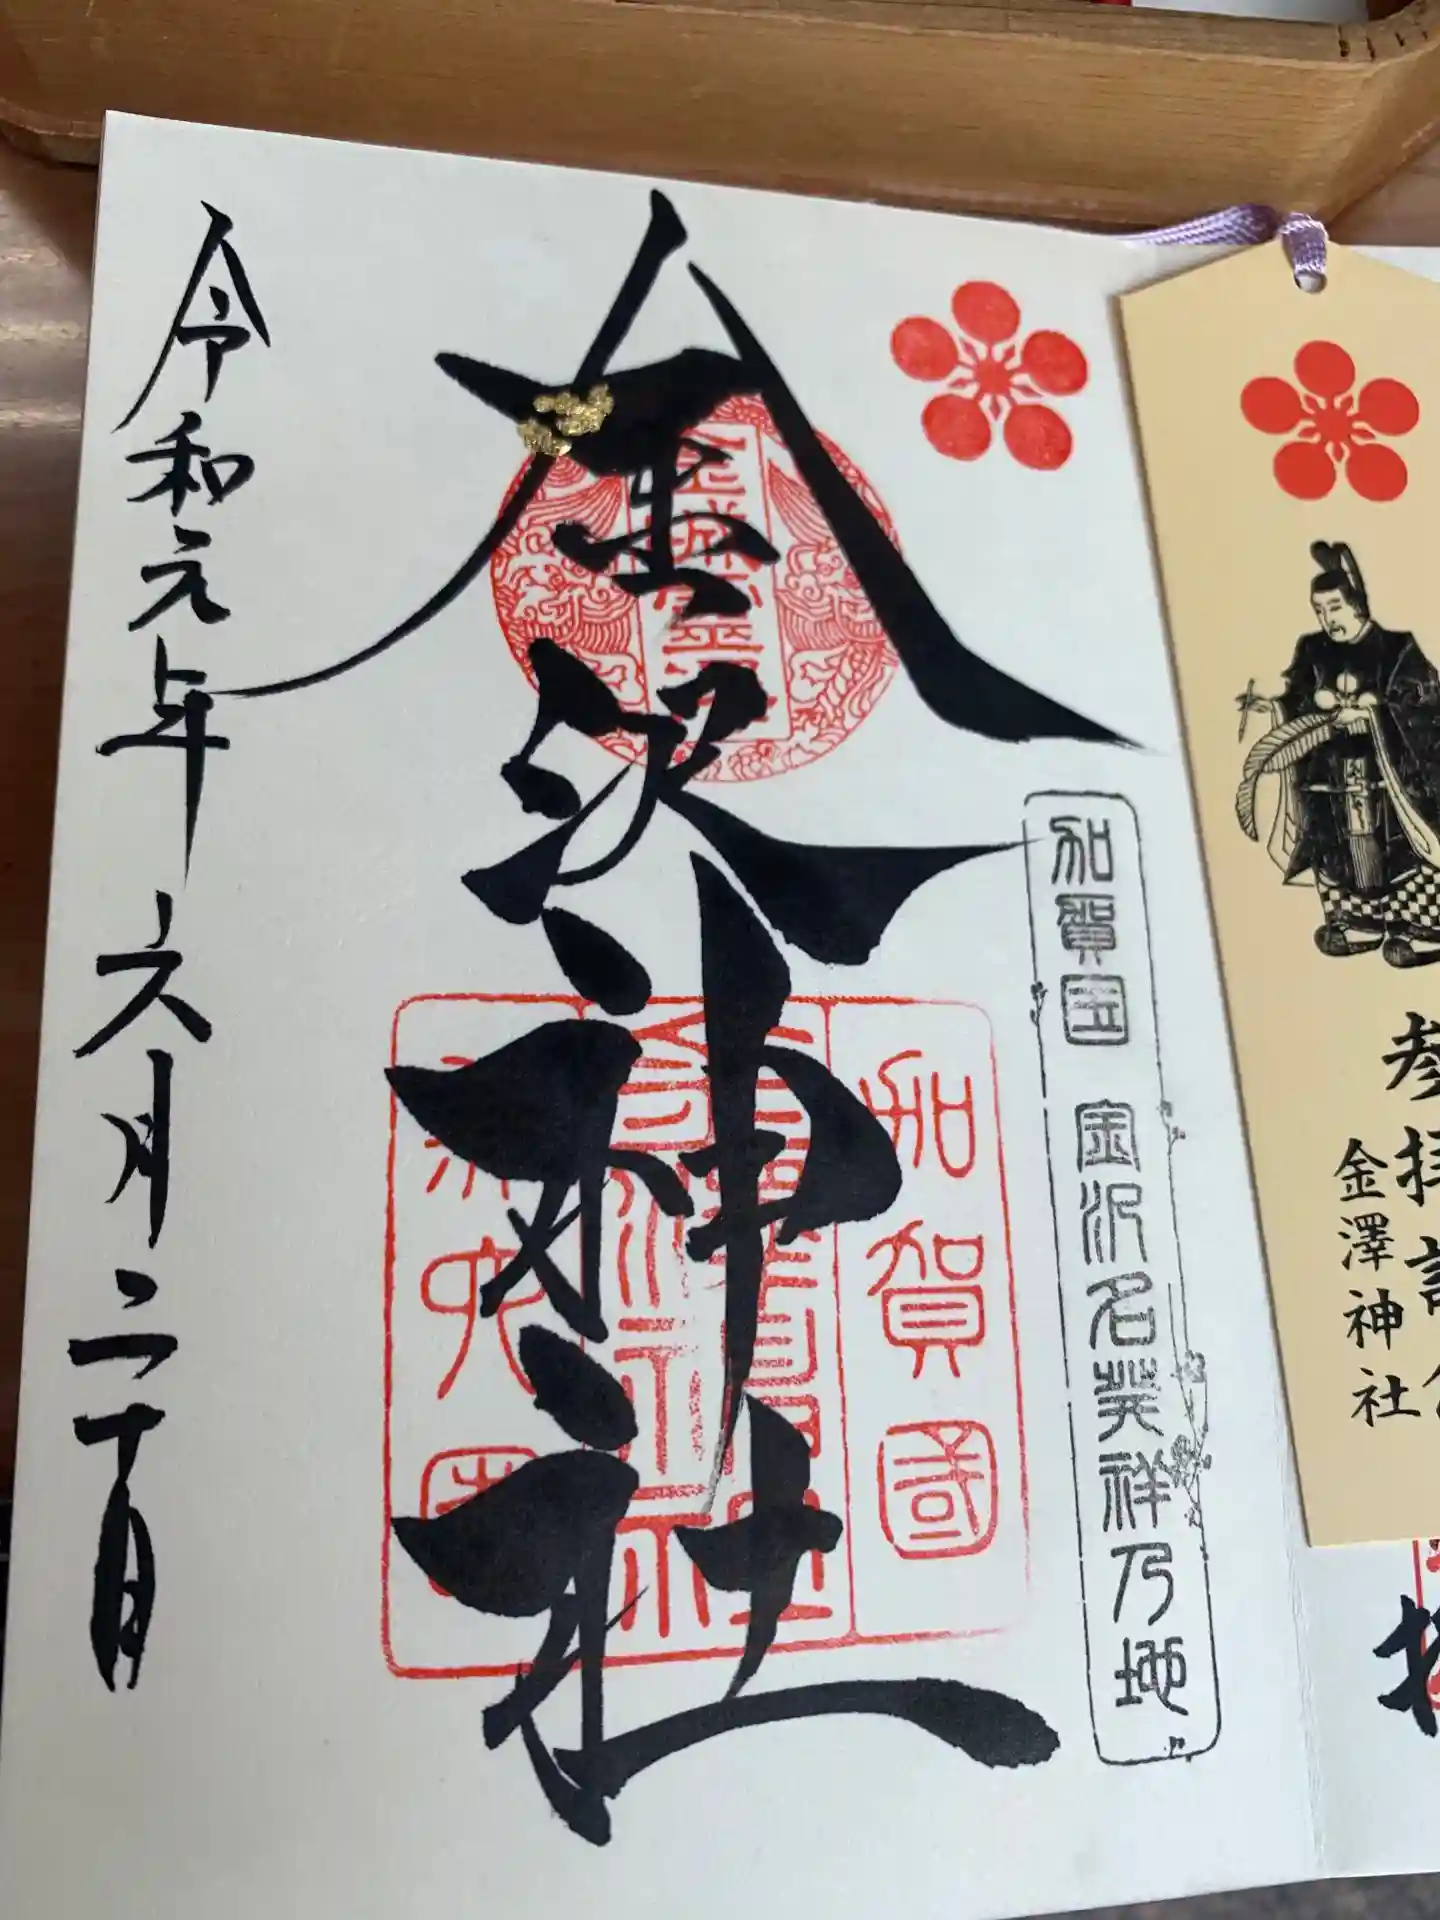 参拝記
金澤神社
加賀国 金沢名発祥乃地
加賀國
金沢神社
令和元年六月二十日